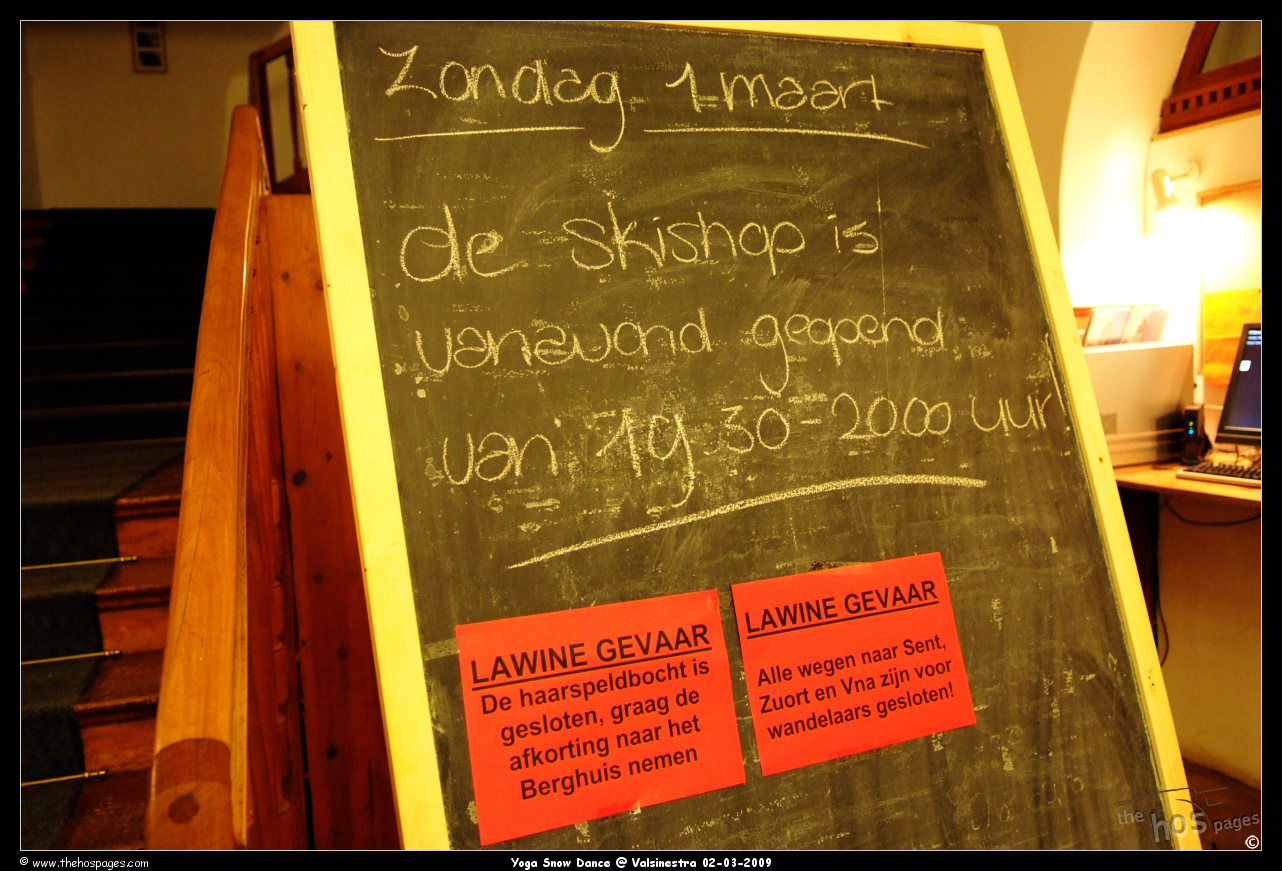 Zondag 1 maart
de skishop is
vanavond geopend
van 19.30 - 20.00 uur
LAWINE GEVAAR
De haarspeldbocht is
gesloten, graag de
afkorting naar het
Berghuis nemen
LAWINE GEVAAR
Alle wegen naar Sent,
Zuort en Vna zijn voor
wandelaars gesloten!
the hos pages
©
© www.thehospages.com
Yoga Snow Dance @ Valsinestra 02-03-2009